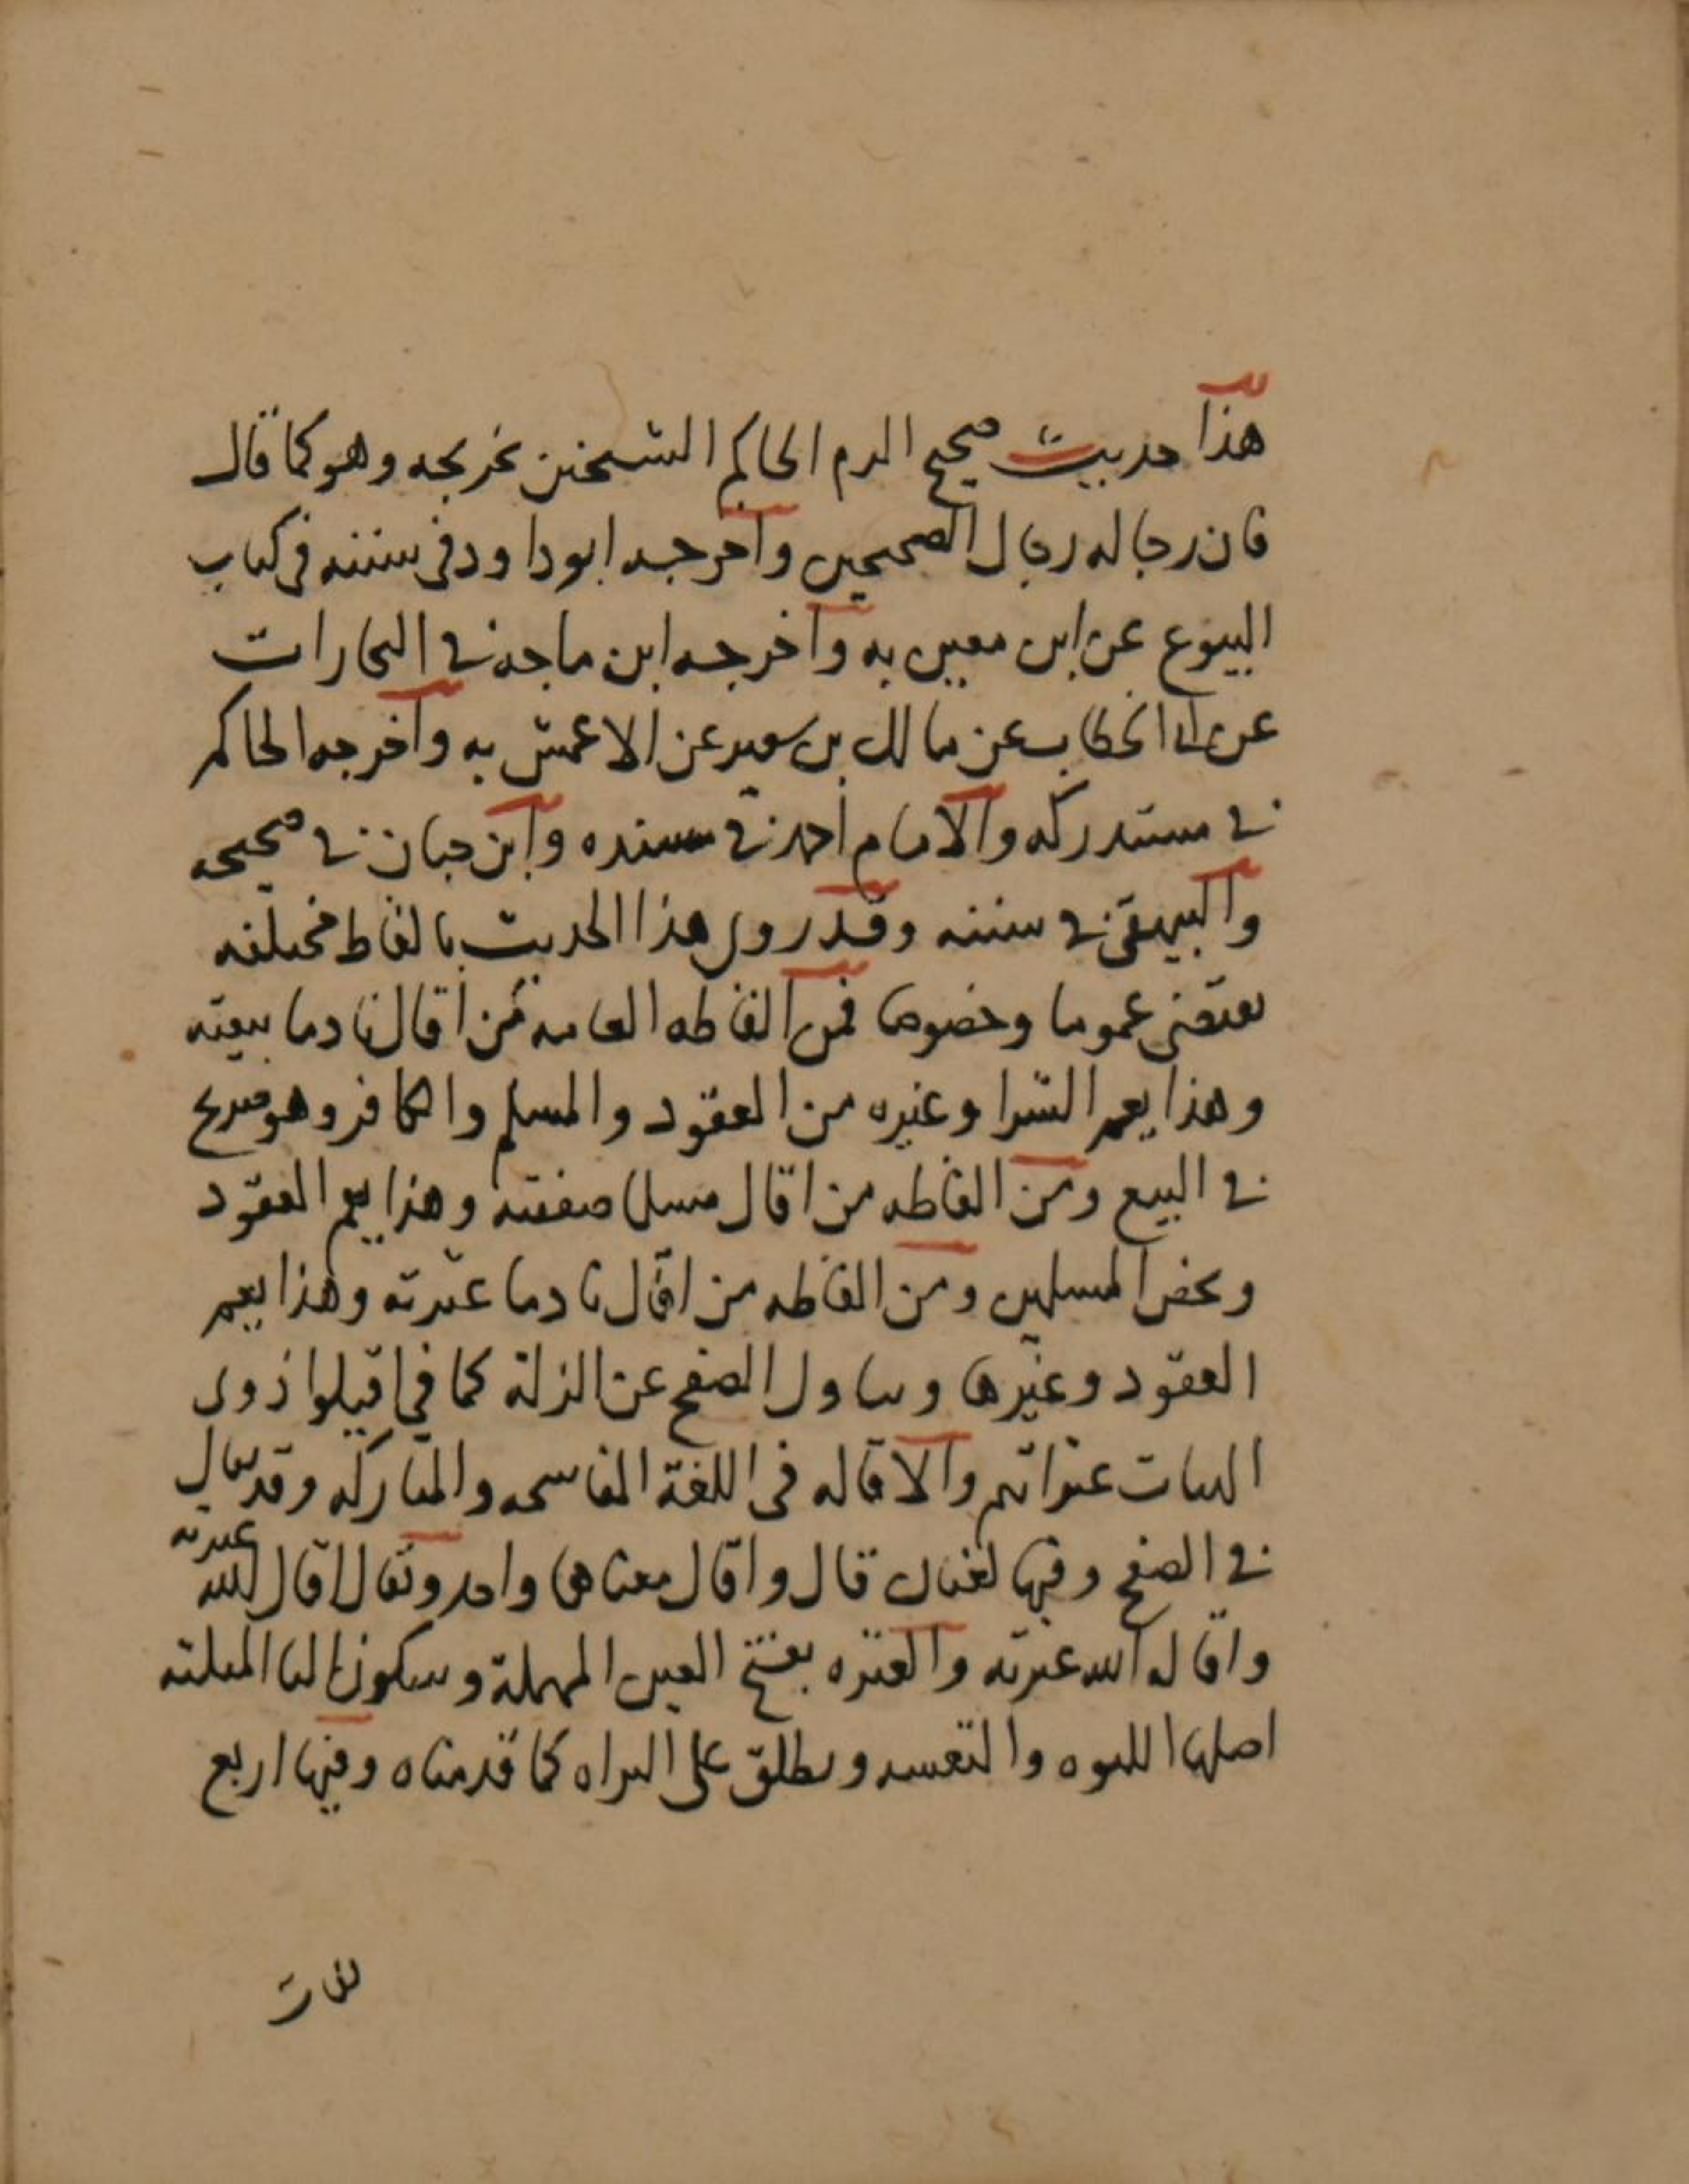 هذا حديث صحيح الزم الحاكم الشيخين تخريجه وهو كما قال
فان رجاله رجال الصحيحين واخرجه ابو داود في سننه في كتاب
البيوع عن ابن معين به واخرجه ابن ماجه في التجارات
عن الخطاب عن مالك بن سعير عن الاعمش به واخرجه الحاكم
في مستدركه والامام احمد في مسنده وابن حبان في صحيحه
والبيهقي في سننه وقد روى هذا الحديث بالفاظ مختلفه
تقتضي عموما وخصوصا فمن الفاظه العامه من اقال نادما بيعته
وهذا يعم الشرا وغيره من العقود والمسلم والكافر وهو صريح
في البيع ومن الفاظه من اقال مسلما صفقته وهذا يعم العقود
ويخص المسلمين ومن الفاظه من اقال نادما عثرته وهذا يعم
العقود وغيرها ويناول الصفح عن الزلة كما في اقيلوا ذوى
الهيات عثراتهم والاقاله في اللغة المفاسحه والمتاركه وقد يقال
في الصفح وفيها لغتان قال واقال معناها واحد ويقال اقال الله عثرته
واقاله الله عثرته والعثره بفتح العين المهملة وسكون الثا المثلثه
اصلها وتطلق على المراه كما قدمناه وفيها اربع
لغات